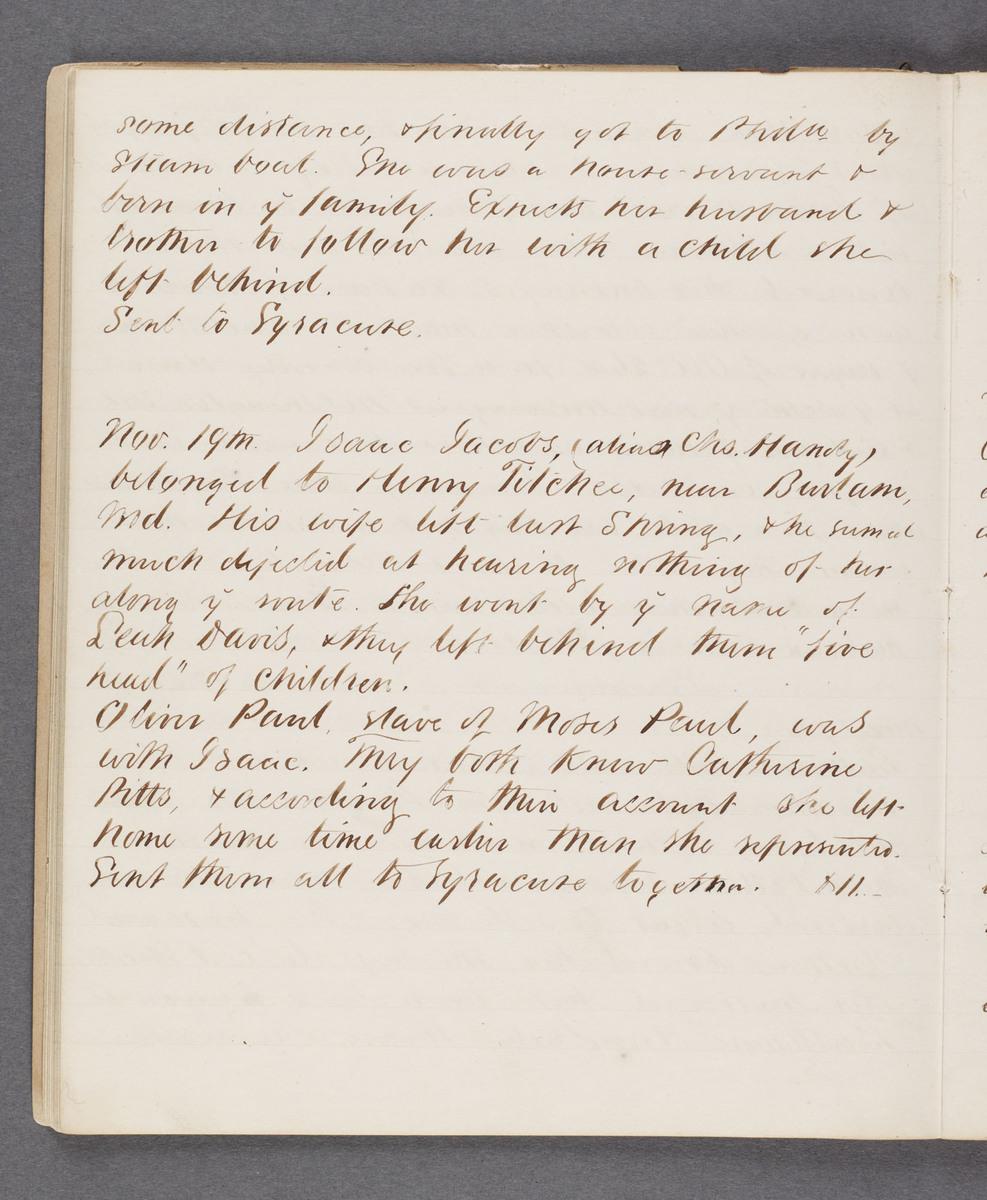 some distance, & finally got to Phila by
steam boat. She was a house-servant &
born in y family. Expects her husband &
brother to follow her with a child she
left behind.
Sent to Syracuse.
Nov. 19th. Isaac Jacobs, (alias Chs. Handy,)
belonged to Henry Titchee, near Burlam,
Md. His wife left last Spring, & he seemed
much dejected at hearing nothing of her
along y route. She went by y name of
Leah Davis, & they left behind them "five
head" of children.
Oliver Paul, slave of Moses Paul, was
with Isaac. They both knew Catherine
Pitts, & according to their account she left
home some time earlier than she represented.
Sent them all to Syracuse together. $11.-